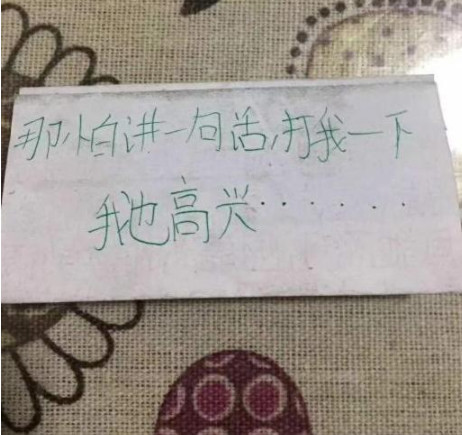 那怕讲一句话,打我一下
我也高兴·······